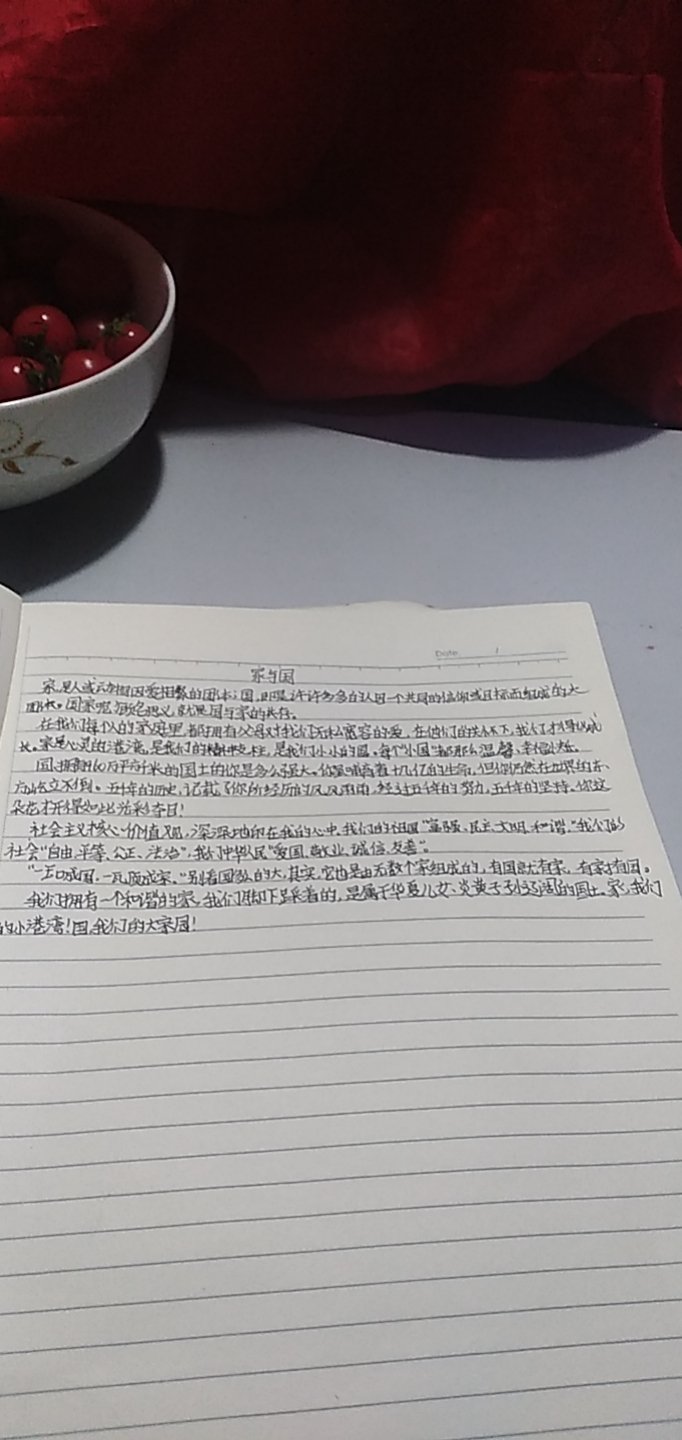 Date / 
家与国
家,是人或动物因爱相聚的团体;国,即是许许多多的人因一个共同的信仰或目标而组成的大
团体。国家呢?顾名思义,就是国与家的共存。
在我们每个人的家庭里,都拥有父母对我们无私宽容的爱,在他们的关怀下,我们才得以成
长。家是心灵的港湾,是我们的精神支柱,是我们小小的国。每个"小国"都那么温馨、幸福快乐。
国,拥有960万平方千米的国土的你是多么强大。你强哺育着十几亿的生命,但你仍然在世界的东
方屹立不倒。五千年的历史,记载了你所经历的风风雨雨,经过五千年的努力,五千年的坚持,你这
朵花才开得如此光彩夺目!
社会主义核心价值观,深深地印在我的心中,我们的祖国"富强、民主、文明、和谐。"我们的
社会"自由、平等、公正、法治",我们中华人民"爱国、敬业、诚信、友善"。
"一玉口成国,一瓦顶成家。"别看国多么的大,其实,它也是由无数个家组成的,有国就有家,有家才有国。
我们拥有一个和谐的家,我们脚下踩着的,是属于华夏儿女、炎黄子孙辽阔的国土。家,我们
的小港湾!国,我们的大家园!